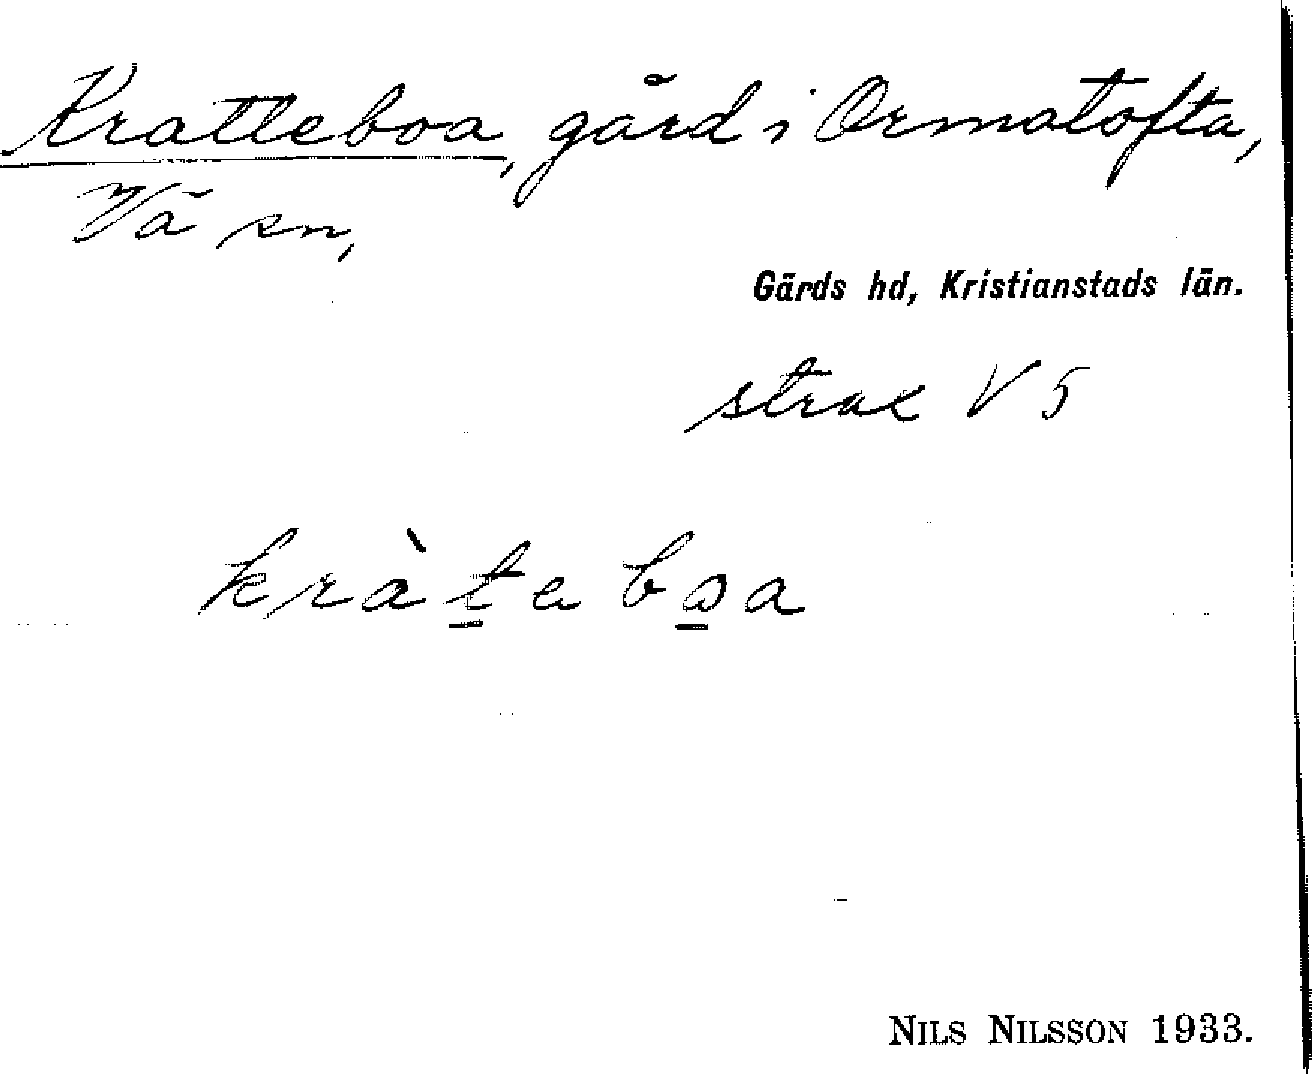 Kratteboa, gård i Ormatofta,
Vä sn,
Gärds hd, Kristianstads län.
strax V 5
kràt̲e bo̲a
NILS NILSSON 1933.